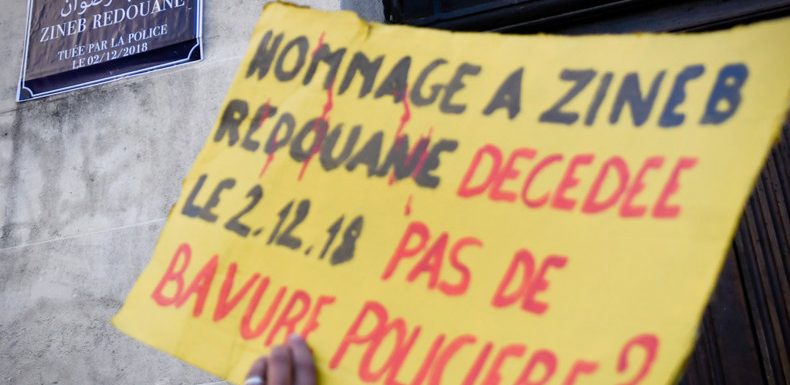 زينب رضوان
ZINEB REDOUANE
TUÉE PAR LA POLICE
LE 02/12/2018
HOMMAGE A ZINEB
REDOUANE DECEDEE
LE 2.12.18 PAS DE
BAVURE POLICIERE?